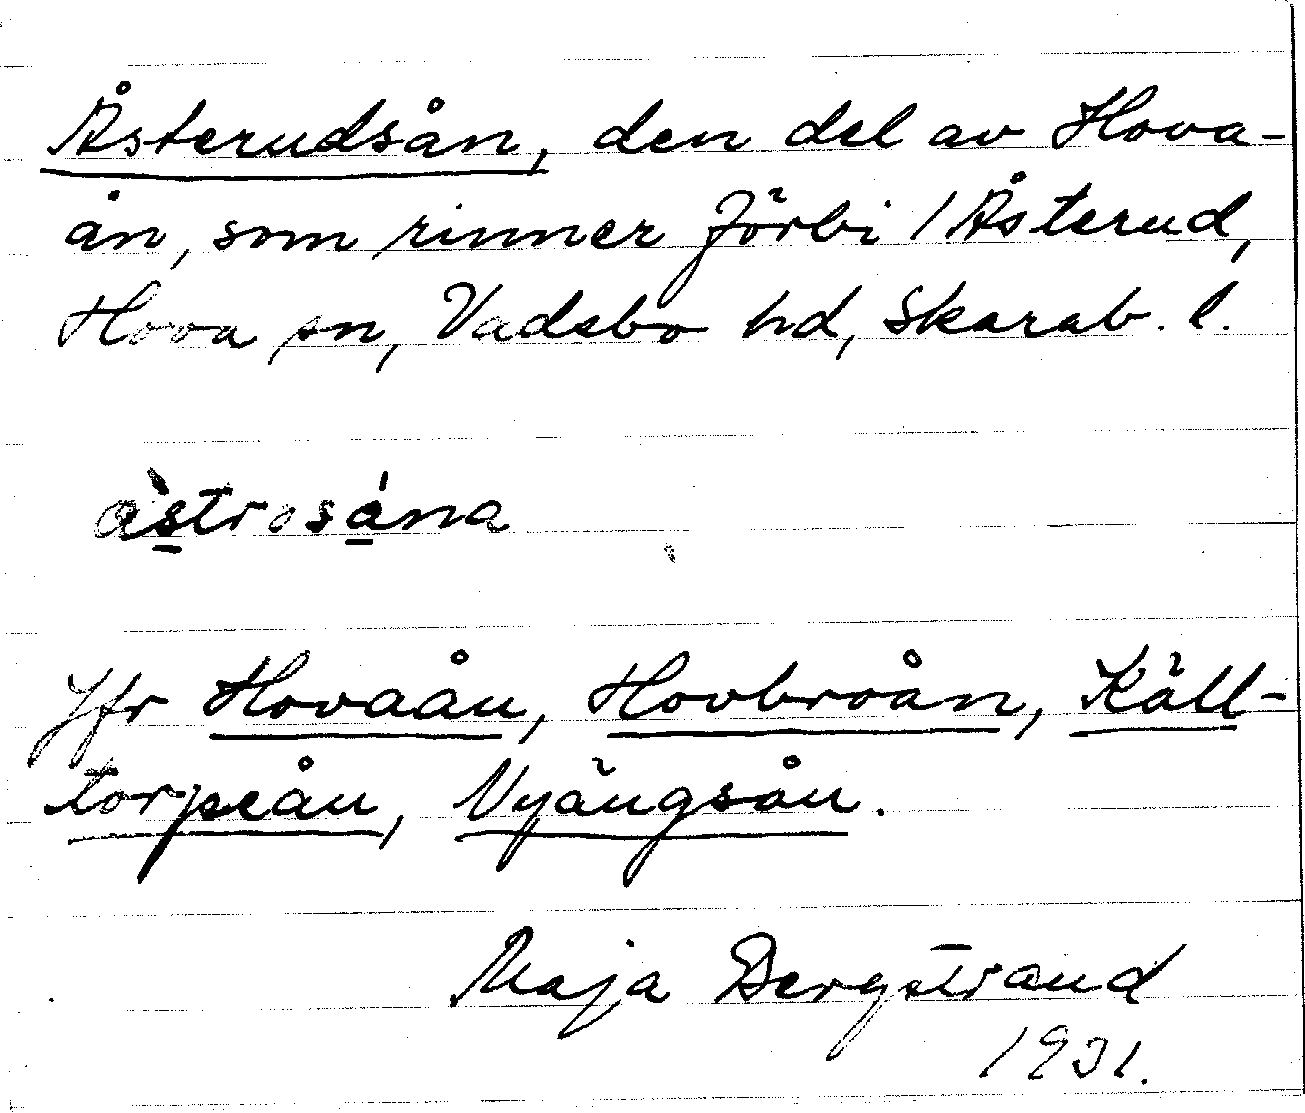 Åsterudsån, den del av Hova-
ån, som rinner förbi / Åsterud,
Hova sn, Vadsbo hd, Skarab. l.
àstrosána
Jfr Hovaån, Hovbroån, Käll-
torpeån, Nyängsån.
Maja Bergstrand
1931.